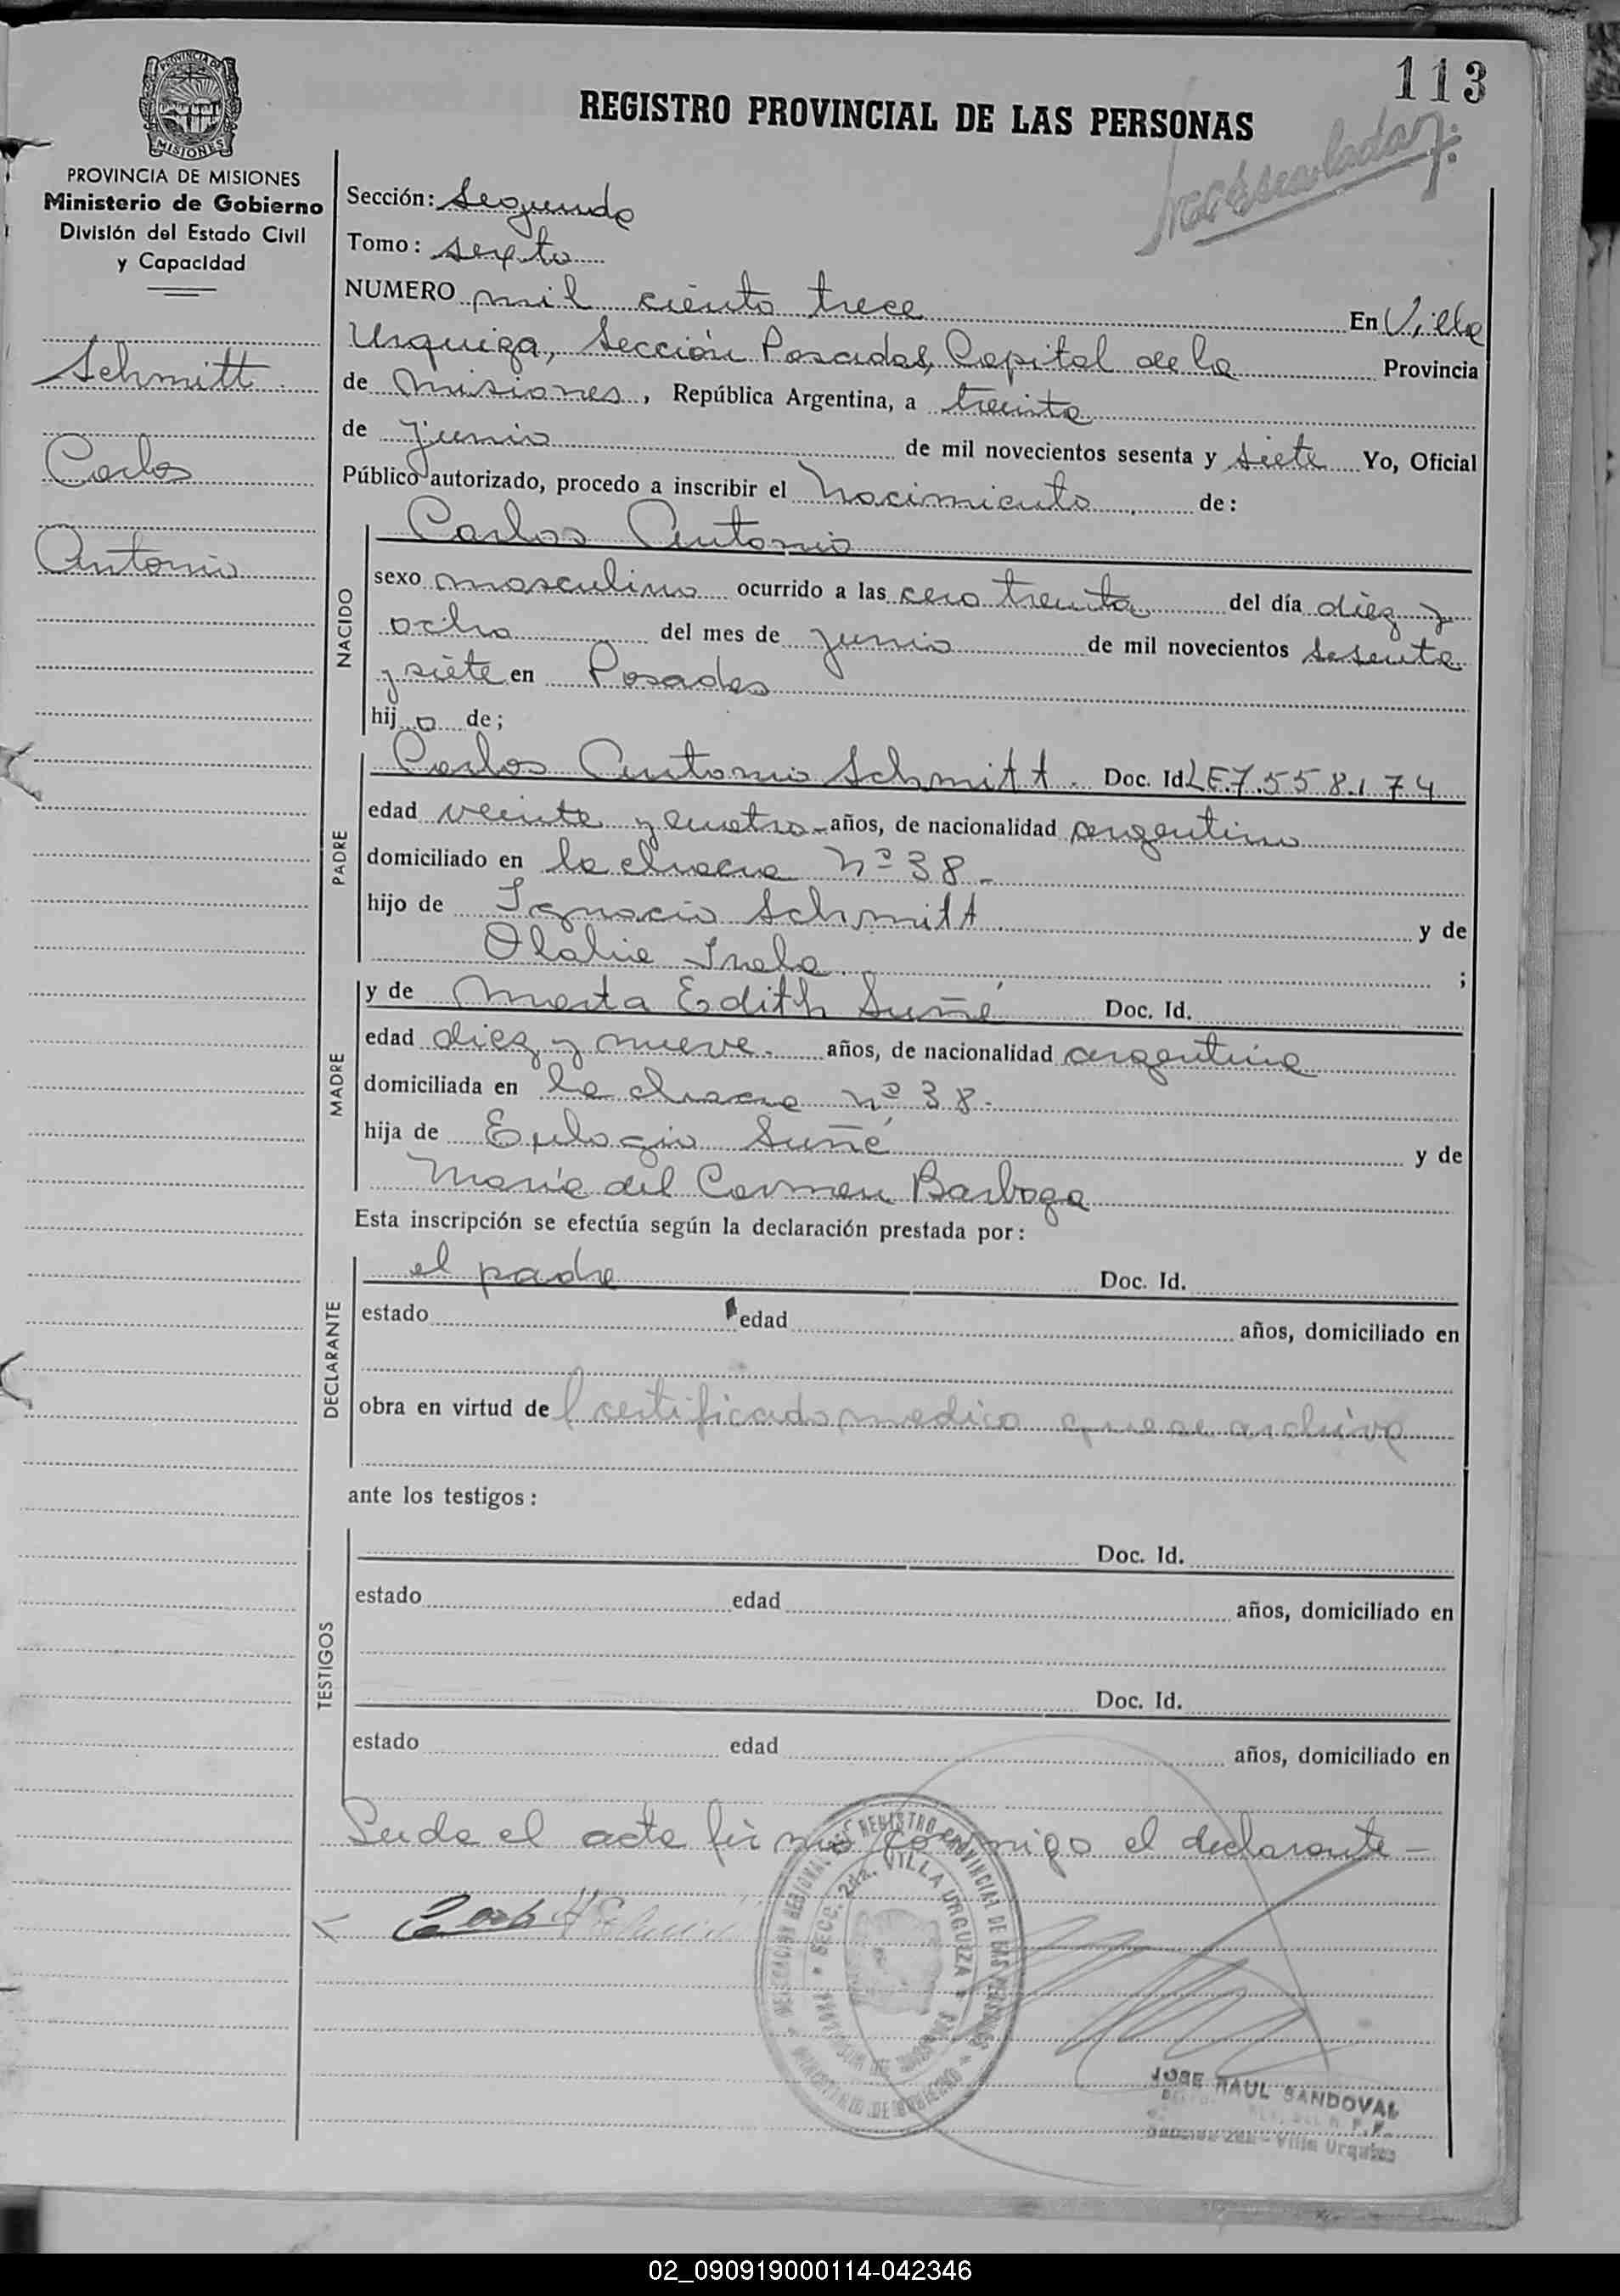 113
REGISTRO PROVINCIAL DE LAS PERSONAS
PROVINCIA DE MISIONES
MISIONES
PROVINCIA DE MISIONES
Ministerio de Gobierno
División del Estado Civil
y Capacidad
Schmitt
Carlos
Antonio
Sección: Segunda
Tomo: sexto
NUMERO mil ciento trece En Villa
Urquiza, Sección Posadas, Capital de la Provincia
de Misiones, República Argentina, a treinta
de junio de mil novecientos sesenta y siete Yo, Oficial
Público autorizado, procedo a inscribir el Nacimiento de:
NACIDO
Carlos Antonio
sexo masculino ocurrido a las cero treinta del día diez y
ocho del mes de junio de mil novecientos sesenta
y siete en Posadas
hijo de;
PADRE
Carlos Antonio Schmitt. Doc. Id. L.E.7.558.174
edad veinte y cuatro años, de nacionalidad argentino
domiciliado en la chacra Nº 38-
hijo de Ignacio Schmitt y de
;
MADRE
y de Marta Edith Suñé Doc. Id.
edad diez y nueve años, de nacionalidad argentina
domiciliada en la chacra nº 38-
hija de Eulogio Suñé y de
María del Carmen Barboza
Esta inscripción se efectúa según la declaración prestada por:
DECLARANTE
el padre Doc. Id.
estado edad años, domiciliado en
obra en virtud del certificado medico que se archiva
ante los testigos:
TESTIGOS
Doc. Id.
estado edad años, domiciliado en
Doc. Id.
estado edad años, domiciliado en
Leida el acta firma conmigo el declarante-
REGISTRO PROVINCIAL DE LAS PERSONAS
Secc. 2da. VILLA URQUIZA
MINISTERIO DE GOBIERNO
JOSE RAUL SANDOVAL
Villa Urquiza
02_090919000114-042346